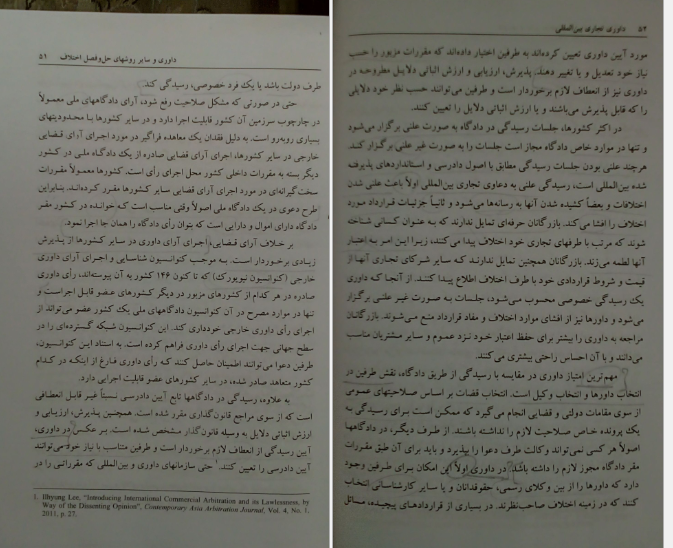 داوری و سایر روشهای حل‌وفصل اختلاف ۵۱
طرف دولت باشد یا یک فرد خصوصی، رسیدگی کند.
حتی در صورتی که مشکل صلاحیت رفع شود، آرای دادگاههای ملی معمولاً
در چارچوب سرزمین آن کشور قابلیت اجرا دارد و در سایر کشورها با محدودیتهای
بسیاری روبه‌رو است. به دلیل فقدان یک معاهده فراگیر در مورد اجرای آرای قضایی
خارجی در سایر کشورها، اجرای آرای قضایی صادره از یک دادگاه ملی در کشور
دیگر بسته به مقررات داخلی کشور محل اجرای رأی است. کشورها معمولاً مقررات
سخت‌گیرانه‌ای در مورد اجرای آرای قضایی سایر کشورها مقرر کرده‌اند. بنابراین
طرح دعوی در یک دادگاه ملی اصولاً وقتی مناسب است که خوانده در کشور مقر
دادگاه دارای اموال و دارایی است که بتوان رأی دادگاه را همان جا اجرا نمود.
بر خلاف آرای قضایی، اجرای آرای داوری در سایر کشورها از پذیرش
زیادی برخوردار است. به موجب کنوانسیون شناسایی و اجرای آرای داوری
خارجی (کنوانسیون نیویورک) که تا کنون ۱۴۶ کشور به آن پیوسته‌اند، رأی داوری
صادره در هر کدام از کشورهای مزبور در دیگر کشورهای عضو قابل اجراست و
تنها در موارد مصرح در آن کنوانسیون دادگاههای ملی یک کشور عضو می‌تواند از
اجرای رأی داوری خارجی خودداری کند. این کنوانسیون شبکه گسترده‌ای را در
سطح جهانی جهت اجرای رأی داوری فراهم کرده است. به استناد این کنوانسیون،
طرفین دعوا می‌توانند اطمینان حاصل کنند که رأی داوری فارغ از اینکه در کدام
کشور متعاهد صادر شده، در سایر کشورهای عضو قابلیت اجرایی دارد.
به علاوه، رسیدگی در دادگاهها تابع آیین دادرسی نسبتاً غیر قابل انعطافی
است که از سوی مراجع قانون‌گذاری مقرر شده است. همچنین پذیرش، ارزیابی و
ارزش اثباتی دلایل به وسیله قانون‌گذار مشخص شده است. بر عکس در داوری،
آیین رسیدگی از انعطاف لازم برخوردار است و طرفین متناسب با نیاز خود می‌توانند
آیین دادرسی را تعیین کنند.¹ حتی سازمانهای داوری و بین‌المللی که مقرراتی را در
1. Ilhyung Lee, "Introducing International Commercial Arbitration and its Lawlessness, by
Way of the Dissenting Opinion", Contemporary Asia Arbitration Journal, Vol. 4, No. 1,
2011, p. 27.
۵۲ داوری تجاری بین‌المللی
مورد آیین داوری تعیین کرده‌اند به طرفین اختیار داده‌اند که مقررات مزبور را حسب
نیاز خود تعدیل و یا تغییر دهند. پذیرش، ارزیابی و ارزش اثباتی دلایل مطروحه در
داوری نیز از انعطاف لازم برخوردار است و طرفین می‌توانند حسب نظر خود دلایلی
را که قابل پذیرش می‌باشند و یا ارزش اثباتی دلایل را تعیین کنند.
در اکثر کشورها، جلسات رسیدگی در دادگاه به صورت علنی برگزار می‌شود
و تنها در موارد خاص دادگاه مجاز است جلسات را به صورت غیر علنی برگزار کند.
هرچند علنی بودن جلسات رسیدگی مطابق با اصول دادرسی و استانداردهای پذیرفته
شده بین‌المللی است، رسیدگی علنی به دعاوی تجاری بین‌المللی اولاً باعث علنی شدن
اختلافات و بعضاً کشیده شدن آنها به رسانه‌ها می‌شود و ثانیاً جزئیات قرارداد مورد
اختلاف را افشا می‌کند. بازرگانان حرفه‌ای تمایل ندارند که به عنوان کسانی شناخته
شوند که مرتب با طرفهای تجاری خود اختلاف پیدا می‌کنند، زیرا این امر به اعتبار
آنها لطمه می‌زند. بازرگانان همچنین تمایل ندارند که سایر شرکای تجاری آنها از
قیمت و شروط قراردادی خود با طرف اختلاف اطلاع پیدا کنند. از آنجا که داوری
یک رسیدگی خصوصی محسوب می‌شود، جلسات به صورت غیر علنی برگزار
می‌شود و داورها نیز از افشای موارد اختلاف و مفاد قرارداد منع می‌شوند. بازرگانان
مراجعه به داوری را بیشتر برای حفظ اعتبار خود نزد عموم و سایر مشتریان مناسب
می‌دانند و با آن احساس راحتی بیشتری می‌کنند.
مهم‌ترین امتیاز داوری در مقایسه با رسیدگی از طریق دادگاه، نقش طرفین در
انتخاب داورها و انتخاب وکیل است. انتخاب قضات بر اساس صلاحیتهای عمومی
از سوی مقامات دولتی و قضایی انجام می‌گیرد که ممکن است برای رسیدگی به
یک پرونده خاص صلاحیت لازم را نداشته باشند. از طرف دیگر، در دادگاهها
اصولاً هر کسی نمی‌تواند وکالت طرف دعوا را بپذیرد و باید برای آن طبق مقررات
مقر دادگاه مجوز لازم را داشته باشد. در داوری اولاً این امکان برای طرفین وجود
دارد که داورها را از بین وکلای رسمی، حقوقدانان و یا سایر کارشناسانی انتخاب
کنند که در زمینه اختلاف صاحب‌نظرند. در بسیاری از قراردادهای پیچیده، مسائل